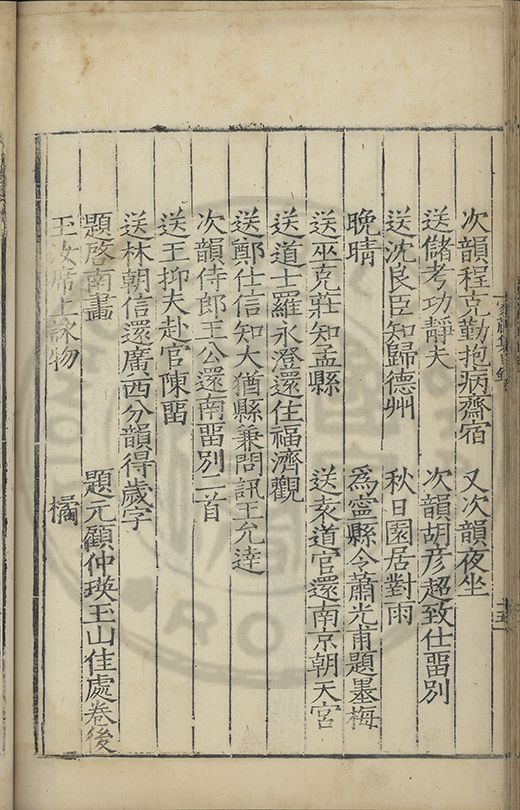 次韻程克勤抱病齋宿　又次韻夜坐
送儲考功靜夫　次韻胡彦超致仕畱別
送沈良臣知歸德州　秋日園居對雨
晩晴　為寧縣令蕭光甫題墨梅
送巫克莊知孟縣　送袁道官還南京朝天宮
送道士羅永澄還住福濟觀
送鄭仕信知大猶縣兼問訊王允逹
次韻侍郎王公還南畱別二首
送王抑夫赴官陳畱
送林朝信還廣西分韻得歲字
題啓南畫　題元顧仲瑛玉山佳處卷後
玉汝席上詠物　橘